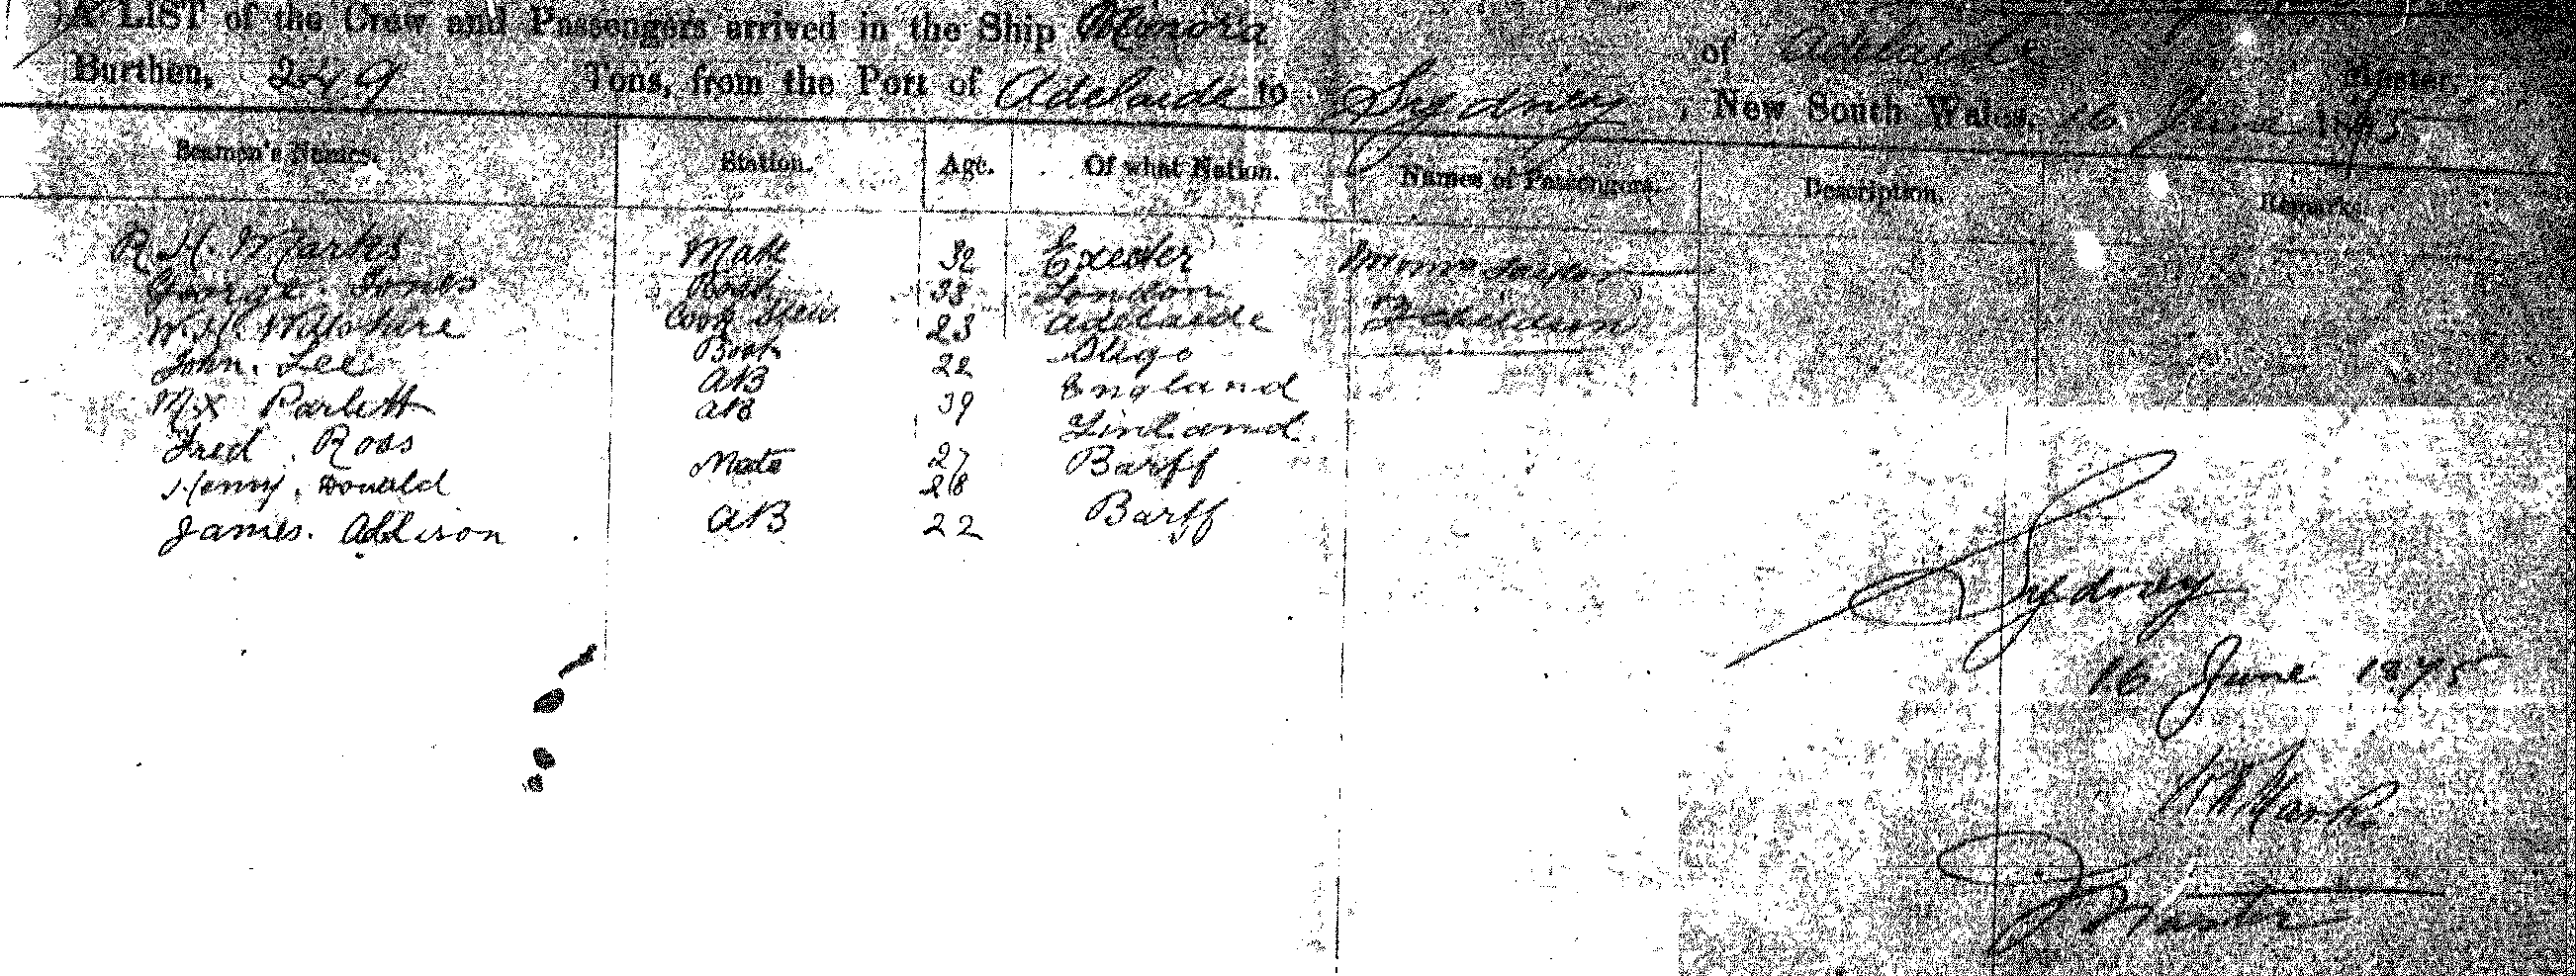 A LIST of the Crew and Passengers arrived in the Ship of Adelaide Master,
Burthen, 249 Tons, from the Port of Adelaide to Sydney, New South Wales, 16 June 1875
Seamen's Names. Station. Age. Of what Nation. Names of Passengers. Description. Remarks.
R. H. Marks Mate 32 Exeter
George. Jones 33 London
W. H. Willshire Cook Stew. 23 Adelaide
John. Lee 22 Sligo
Parlett AB 39 England
Fred. Ross AB 27 Finland
Henry. Donald Mate 28 Barff
James. Addison AB 22 Barff
Sydney
16 June 1875
Marks
Master